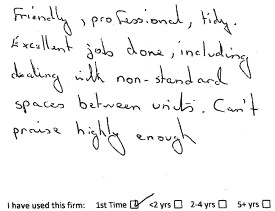 Friendly, professional, tidy.
Excellent job done, including
dealing with non-standard
spaces between units. Can't
praise highly enough
I have used this firm: 1st Time ☑ <2 yrs ☐ 2-4 yrs ☐ 5+ yrs ☐